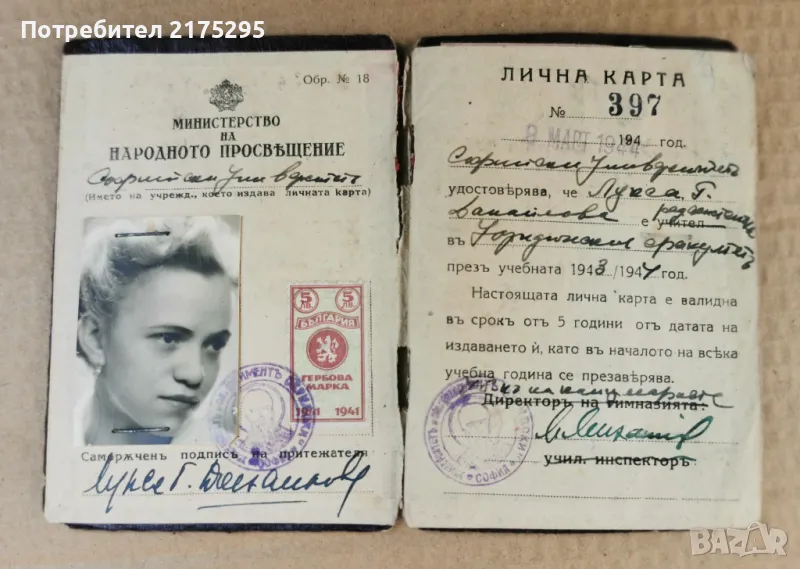 Потребител 2175295
Обр. № 18
МИНИСТЕРСТВО
НА
НАРОДНОТО ПРОСВѢЩЕНИЕ
Софийски Университетъ
(Името на учрежд., което издава личната карта)
5 ЛВ. 5 ЛВ.
БЪЛГАРИЯ
ГЕРБОВА
МАРКА
1941 1941
Саморѫченъ подписъ на притежателя
ЛИЧНА КАРТА
№ 397
8 МАРТ 194 год.
Софийски Университетъ
удостовѣрява, че Луиза Г.
е учител
въ Юридически факултетъ
презъ учебната 1943/1944 год.
Настоящата лична карта е валидна
въ срокъ отъ 5 години отъ датата на
издаването ѝ, като въ началото на всѣка
учебна година се презавѣрява.
Директоръ на гимназията:
СОФИЯ
учил. инспекторъ
BAZAR